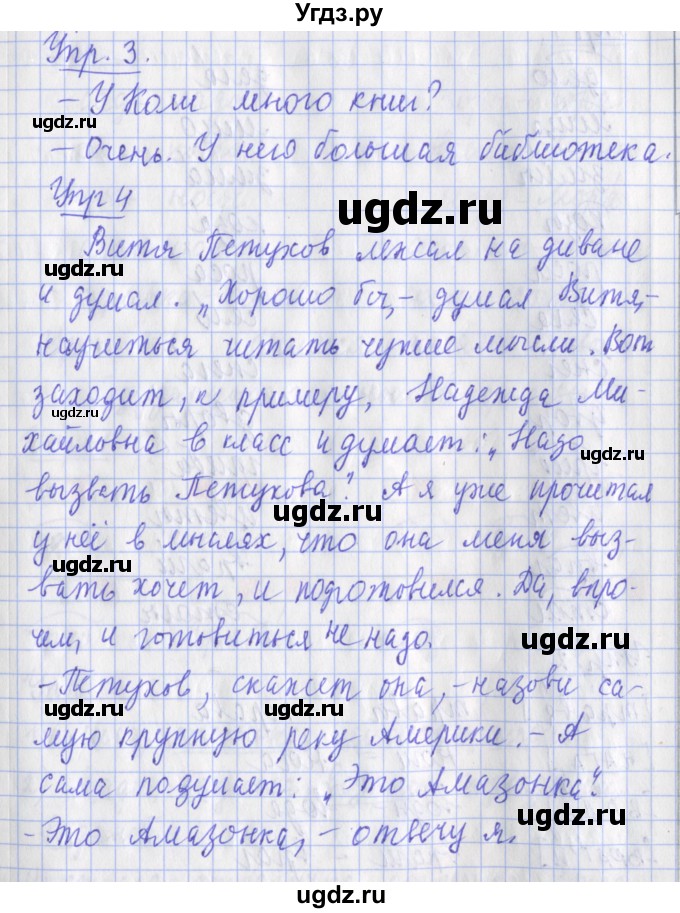 Угдз.ру
Упр. 3.
– У Коли много книг?
ugdz.ru
– Очень. У него большая библиотека.
Упр 4
ugdz.ru
Витя Петухов лежал на диване
ugdz.ru ugdz.ru
и думал. „Хорошо бы, – думал Витя, –
научиться читать чужие мысли. Вот
заходит, к примеру, Надежда Ми-
ugdz.ru
хайловна в класс и думает: „Надо
ugdz.ru
вызвать Петухова". А я уже прочитал
ugdz.ru
у неё в мыслях, что она меня выз-
ugdz.ru
вать хочет, и подготовился. Да, впро-
чем, и готовиться не надо.
ugdz.ru
– Петухов, скажет она, – назови са-
ugdz.ru ugdz.ru
мую крупную реку Америки. – А
сама подумает: „Это Амазонка".
ugdz.ru
– Это Амазонка, – отвечу я.
ugdz.ru
ugdz.ru